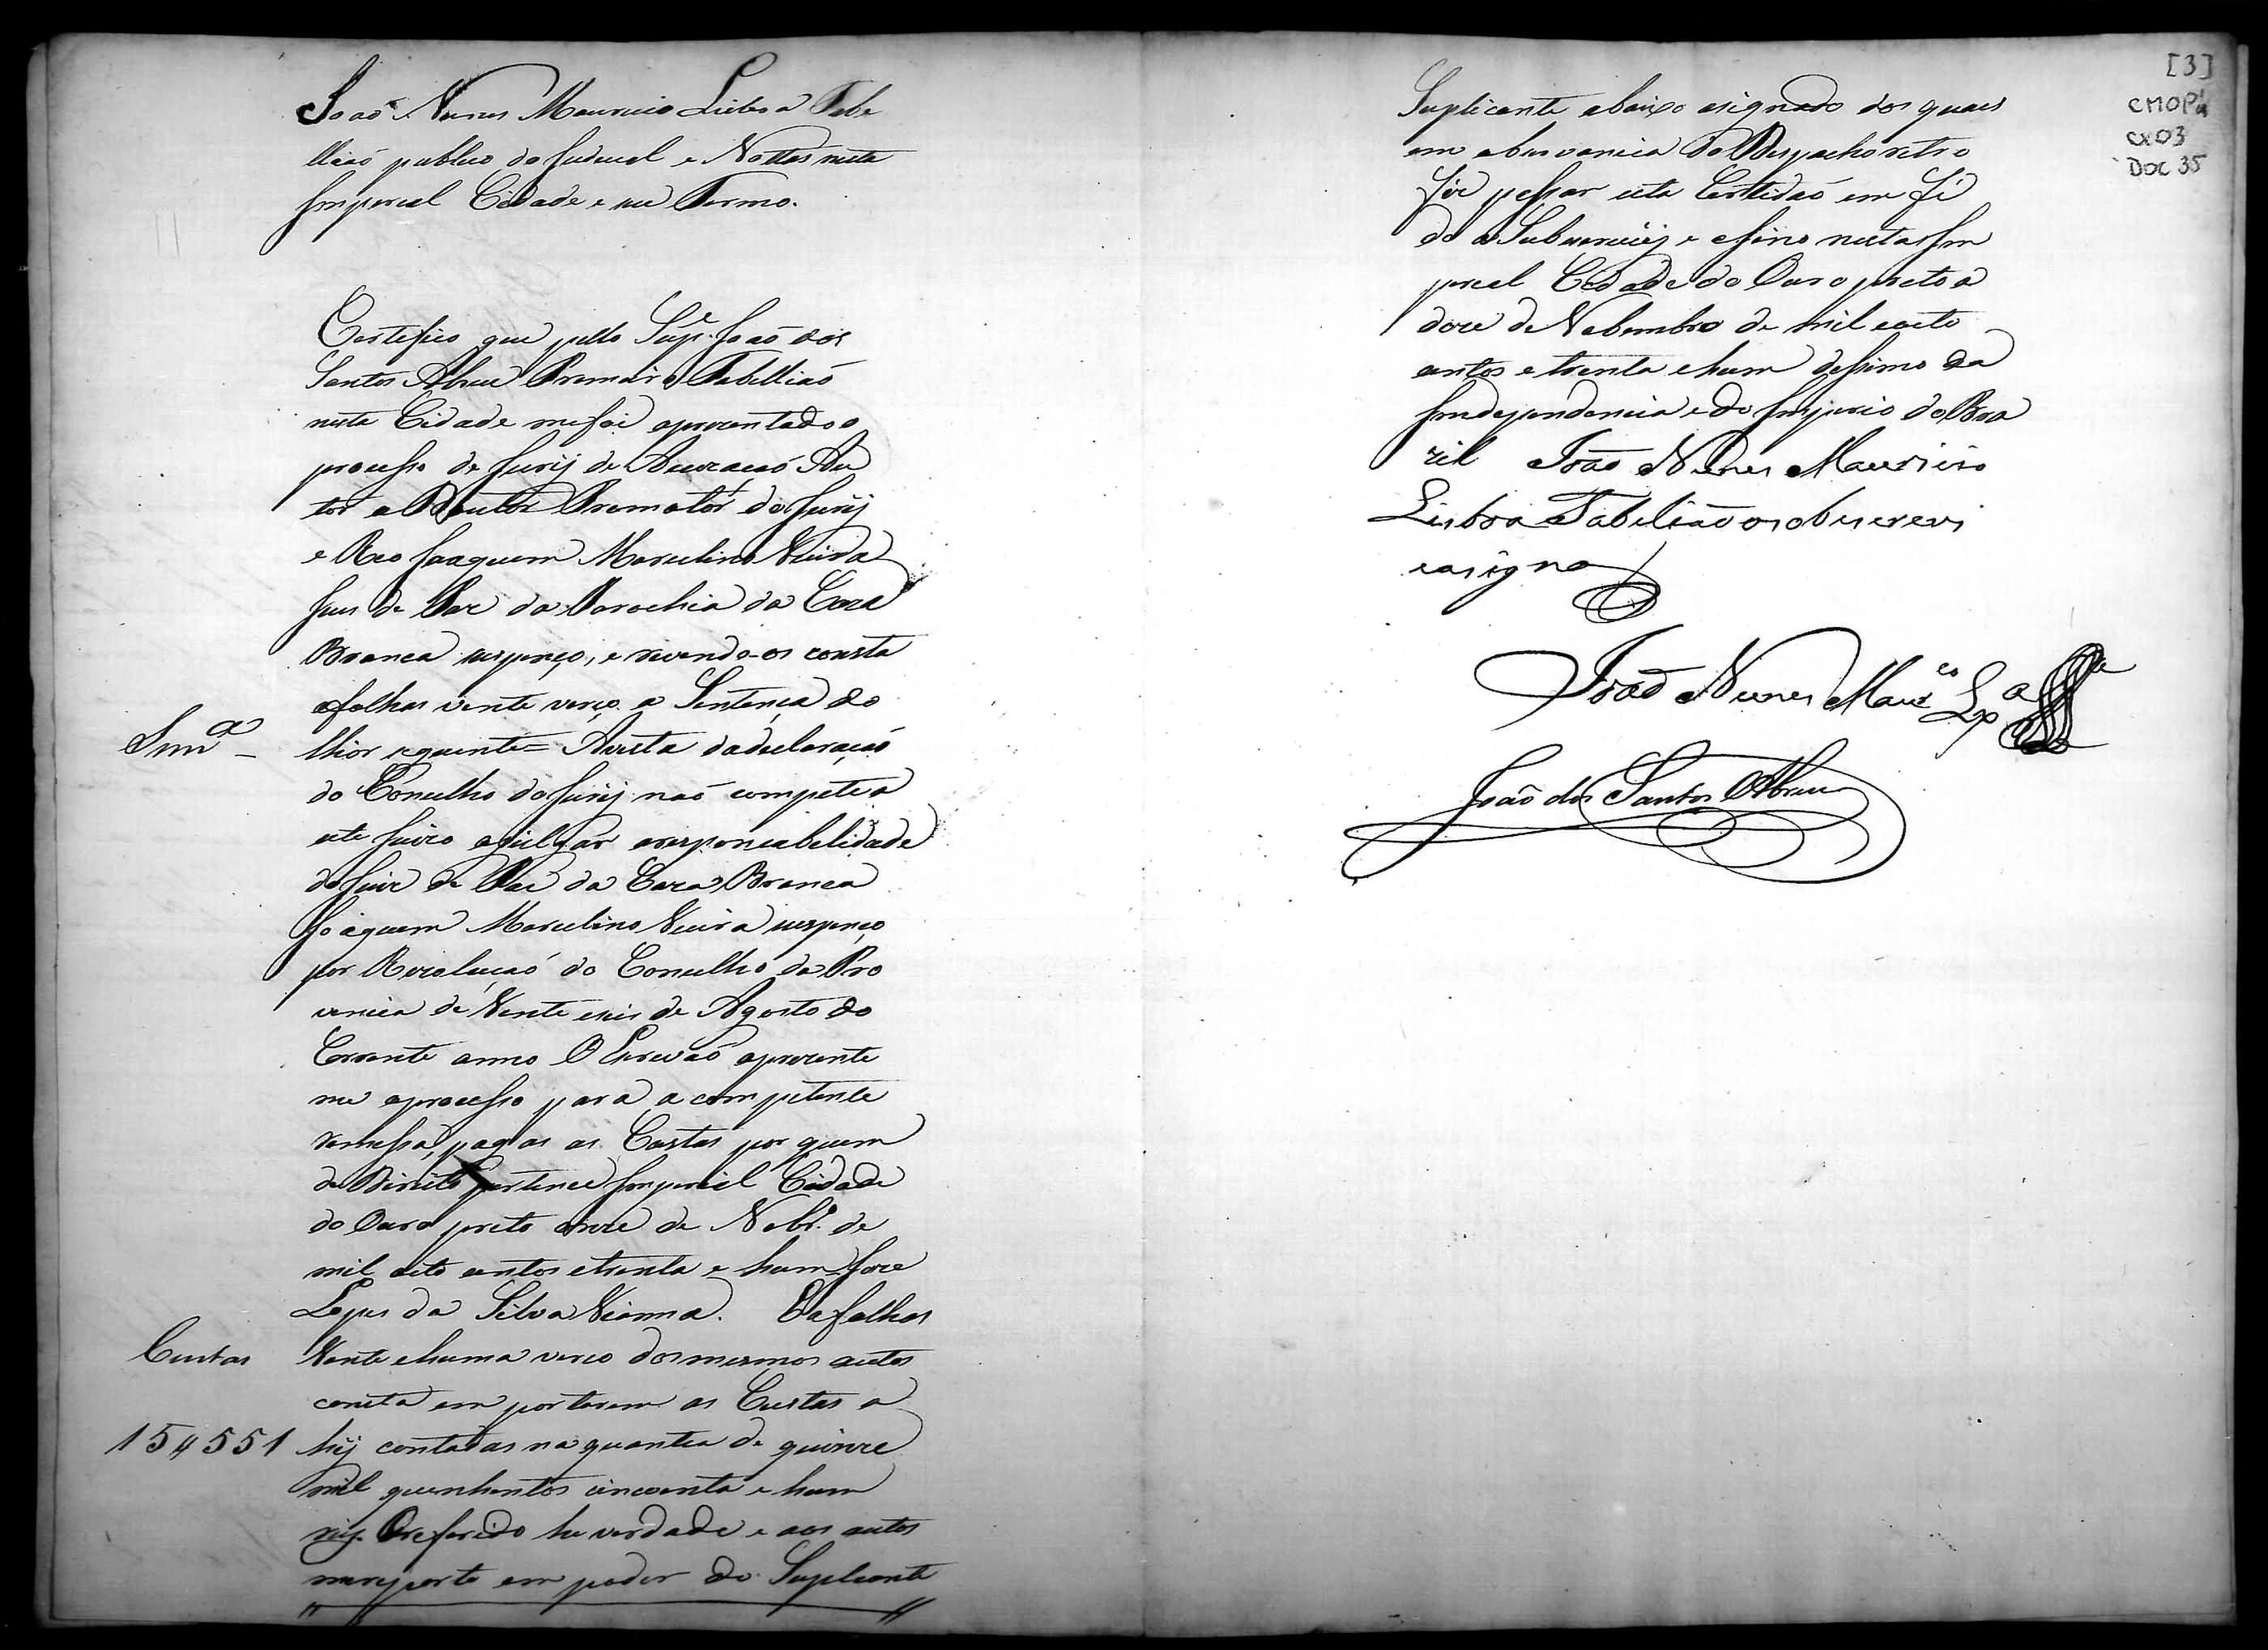 João Nunes Mauricio Lisboa Tabe
lliaõ publico do Judicial e Nottas nesta
Imperial Cidade e seu Termo.
Certefico que pello Sup.e Joaõ dos
Santos Abreu Premeiro Tabelliaõ
nesta Cidade me foi aprezentado o
processo de Jurij de Acuzaçaõ Au
tor o Doutor Promotor do Jurij
e Reo Joaquem Marcelino Vieira
Juis de Paz da Parochia da Caza
Branca suspenço, e revendo-os consta
afolhas vente verço a Sentença do
Snn.ça
thior seguente = Avista dadeclaraçaõ
do Concelho do Jurij naõ compete a
este Juizo ajulgar aresponcabelidade
do Juiz de Paz da Caza Branca
Joaquem Marcelino Vieira suspenço
por Rezoluçaõ do Concelho da Pro
vencia de Vente eseis de Agosto do
Corrente anno O Escrivaõ aprezente
me oprocesso para a competente
remessa, pagas as Custas por quem
de Direito pertence Imperial Cidade
do Ouro preto onze de Nobr.o de
mil oito centos etrenta e hum Joze
Lopes da Silva Vianna. Eafolhas
Custas
Vente ehuma verço dos mesmos autos
consta em portarem as Custas a
15〃551
hij contadas na quantia de quinze
mil quenhentos cincoenta e hum
reiz. Oreferido he verdade e aos autos
mereporto em poder do Suplicante
[3]
CMOP
CX03
DOC 35
Suplicante abaixo asignado dos quaes
em obcervancia do Despacho retro
fiz passar esta Certidaõ em fé
do q Subscreviij e asino nesta Im
perial Cidade do Ouro preto a
doze de Nobembro de mil eoito
centos etrenta ehum dessimo da
Independencia edo Imperio do Bra
zil João Nunes Mauricio
Lisboa Tabelião os obscrevi
easigno
João Nunes Maur.co Lx.a
João dos Santos Abreu